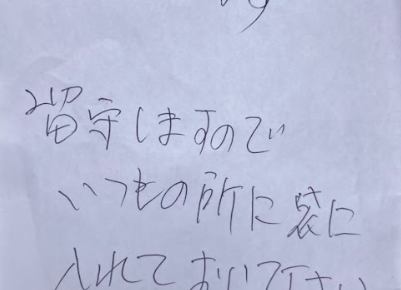 留守しますので
いつもの所に袋に
入れておいて下さい